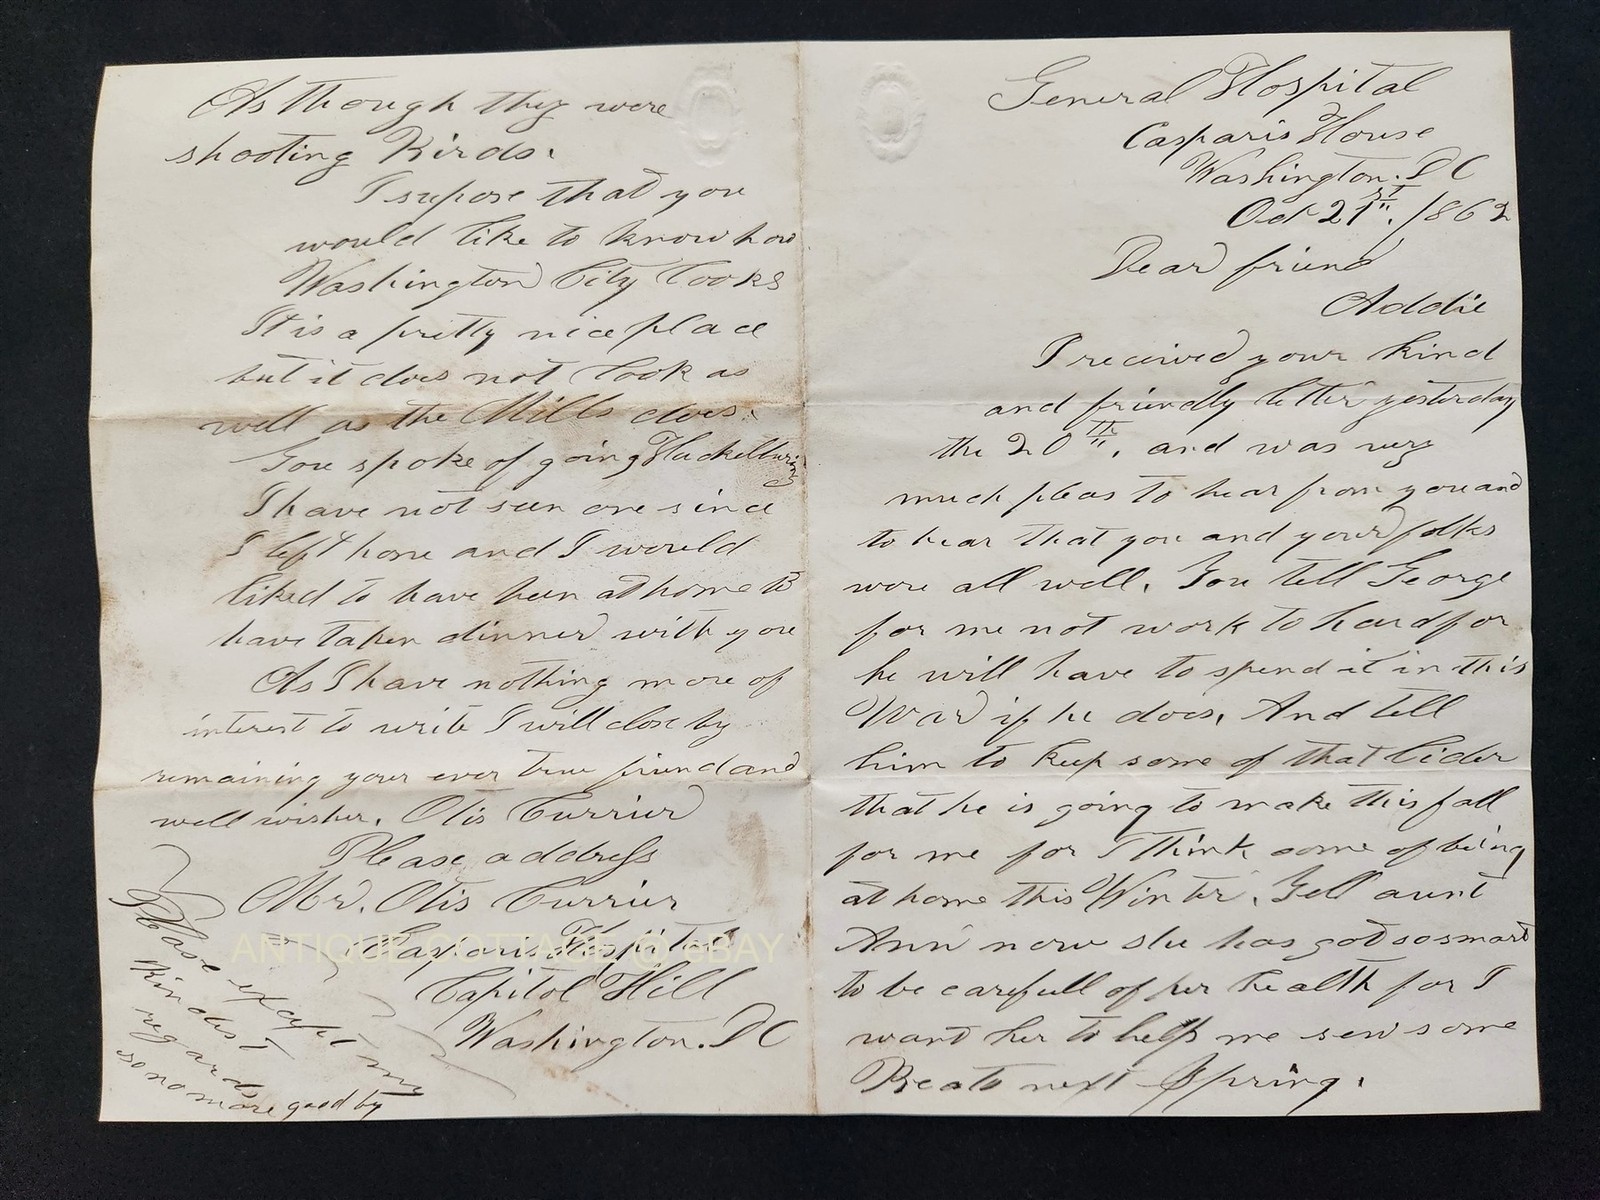 General Hospital
Casparis House
Washington. DC
Oct 21st. 1862
Dear friend
Addie
I received your kind
and friendly letter yesterday
the 20th. and was very
much pleas to hear from you and
to hear that you and your folks
were all well. You tell George
for me not work to hard for
he will have to spend it in this
War if he does. And tell
him to keep some of that Cider
that he is going to make this fall
for me for I think some of being
at home this Winter. Tell aunt
Ann now she has got so smart
to be carefull of her health for I
want her to help me sew some
Beats next Spring.
As though they were
shooting Birds.
I supose that you
would like to know how
Washington City looks
It is a pretty nice place
but it does not look as
well as the Mills does.
You spoke of going
I have not seen one since
I left home and I would
liked to have been at home to
have taken dinner with you
As I have nothing more of
interest to write I will close by
remaining your ever true friend and
well wisher. Otis Currier
Please address
Mr. Otis Currier
Casparis Hospital
Capitol Hill
Washington. DC
Please except my
kindest
regards
so no more good by
ANTIQUE COTTAGE @ eBAY